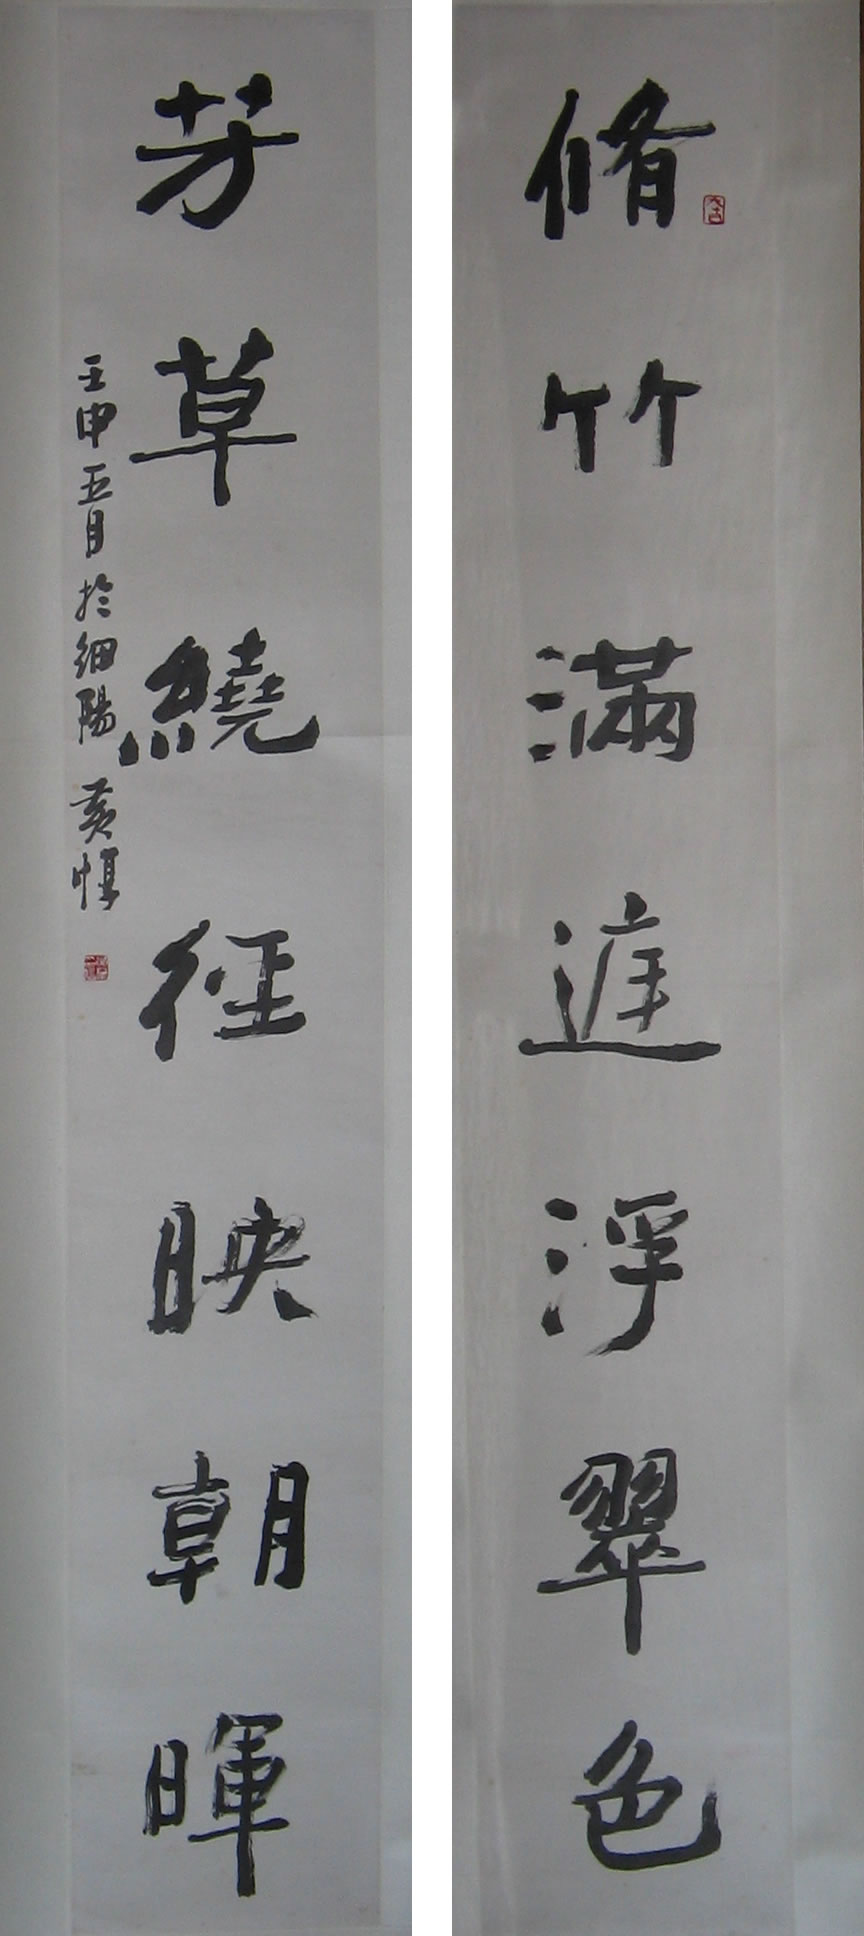 脩竹滿庭浮翠色
芳草繞徑映朝暉
壬申五月於細陽 黃惇